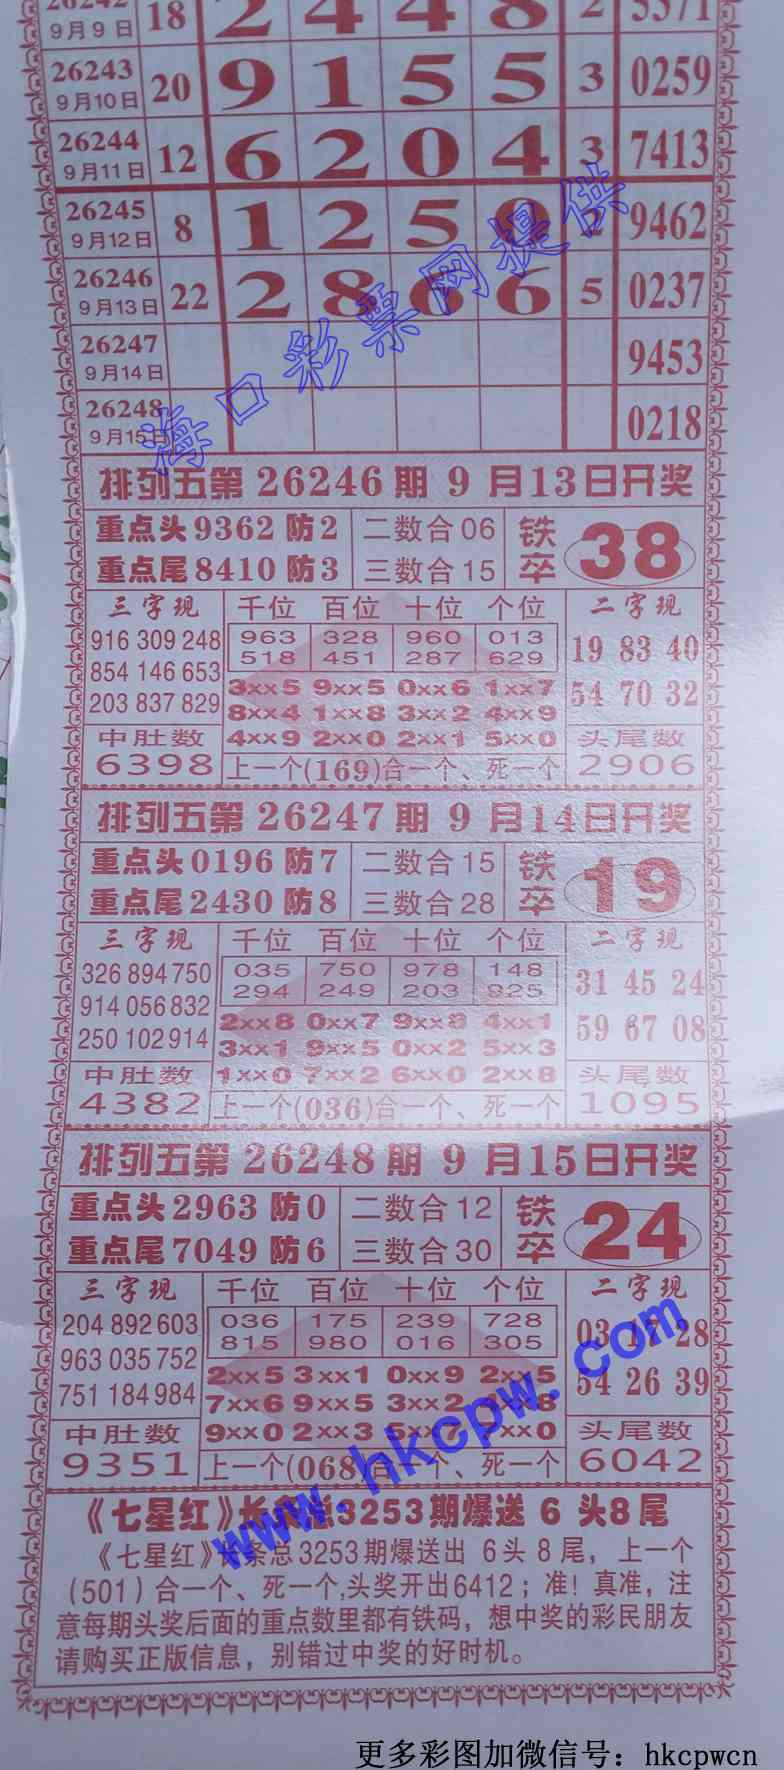 26242 18 2 4 4 8 2 5571
9月9日
26243 20 9 1 5 5 3 0259
9月10日
26244 12 6 2 0 4 3 7413
9月11日
26245 8 1 2 5 0 2 9462
9月12日
26246 22 2 8 6 6 5 0237
9月13日
26247 9453
9月14日
26248 0218
9月15日
海口彩票网提供
排列五第26246期9月13日开奖
重点头9362防2 二数合06 铁卒 38
重点尾8410防3 三数合15
三字现 千位 百位 十位 个位 二字现
916 309 248 963 328 960 013 19 83 40
854 146 653 518 451 287 629
203 837 829 3××5 9××5 0××6 1××7 54 70 32
8××4 1××8 3××2 4××9
中肚数 4××9 2××0 2××1 5××0 头尾数
6398 上一个(169)合一个、死一个 2906
排列五第26247期9月14日开奖
重点头0196防7 二数合15 铁卒 19
重点尾2430防8 三数合28
三字现 千位 百位 十位 个位 二字现
326 894 750 035 750 978 148 31 45 24
914 056 832 294 249 203 825
250 102 914 2××8 0××7 9××8 4××1 59 67 08
3××1 9××5 0××2 5××3
中肚数 1××0 7××2 6××0 2××8 头尾数
4382 上一个(036)合一个、死一个 1095
排列五第26248期9月15日开奖
重点头2963防0 二数合12 铁卒 24
重点尾7049防6 三数合30
三字现 千位 百位 十位 个位 二字现
204 892 603 036 175 239 728 03 17 28
963 035 752 815 980 016 305
751 184 984 2××5 3××1 0××9 2××5 54 26 39
7××6 9××5 3××2 ××8
中肚数 9××0 2××3 5××7 ××0 头尾数
9351 上一个(068)合一个、死一个 6042
www.hkcpw.com
《七星红》长条总3253期爆送 6 头8尾
《七星红》长条总3253期爆送出 6头8尾，上一个
(501)合一个、死一个,头奖开出6412；准！真准，注
意每期头奖后面的重点数里都有铁码，想中奖的彩民朋友
请购买正版信息，别错过中奖的好时机。
更多彩图加微信号：hkcpwcn